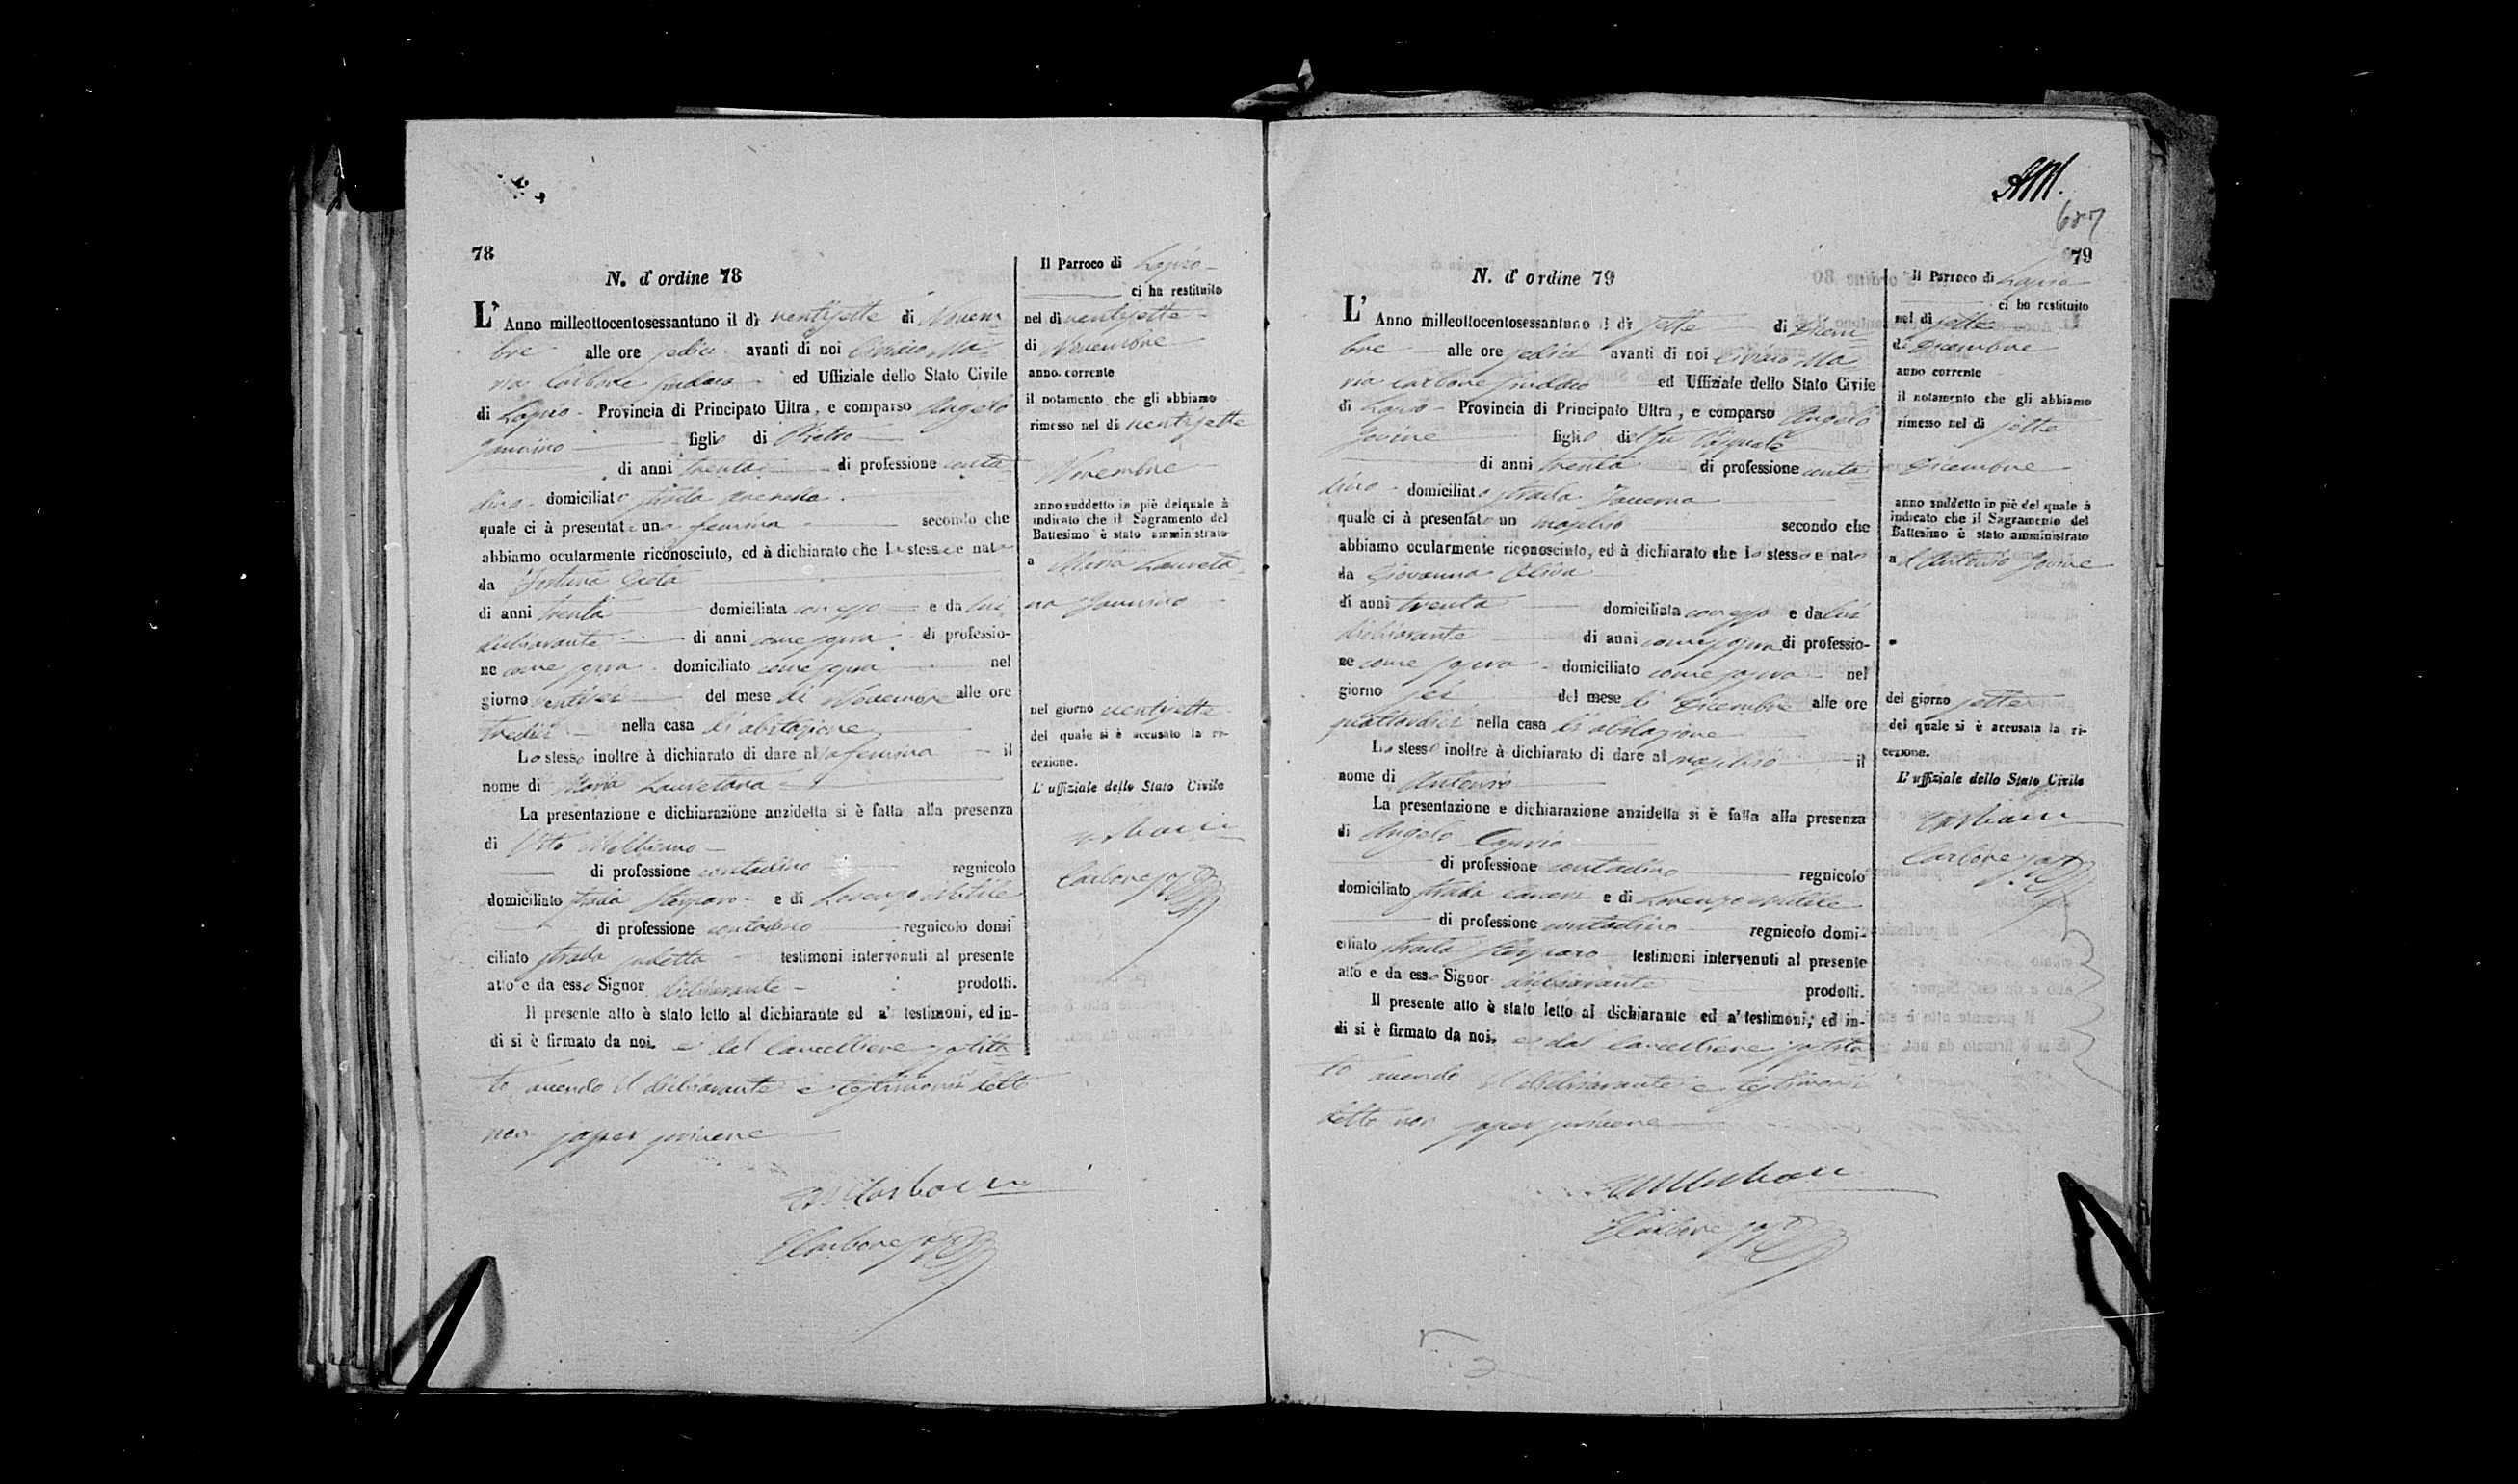 78
N. d'ordine 78
L'Anno milleottocentosessantuno il dì ventisette di Novem
bre alle ore sedici avanti di noi Ma
ria Carbone sindaco ed Uffiziale dello Stato Civile
di Lapio Provincia di Principato Ultra, e comparso Angelo
Jannino figlio di Pietro
di anni trenta di professione conta
dino domiciliato strada
quale ci à presentato una femina secondo che
abbiamo ocularmente riconosciuto, ed à dichiarato che la stessa e nata
da Fortuna
di anni trenta domiciliata con esso e da lui
dichiarante di anni come sopra di professio-
ne come sopra domiciliato come sopra nel
giorno ventisei del mese di Novembre alle ore
tredici nella casa di abitazione
Lo stesso inoltre à dichiarato di dare alla femina il
nome di Maria Lauretana
La presentazione e dichiarazione anzidetta si è fatta alla presenza
di Vito
di professione contadino regnicolo
domiciliato strada e di Lorenzo
di professione contadino regnicolo domi
ciliato strada sudetta testimoni intervenuti al presente
atto e da esso Signor dichiarante prodotti.
Il presente atto è stato letto al dichiarante ed a' testimoni, ed in-
di si è firmato da noi. e dal Cancelliere sostitu
to avendo il dichiarante e testimonii detto
non saper scrivere
Carbone
Il Parroco di Lapio
ci ha restituito
nel di ventisette
di Novembre
anno. corrente
il notamento che gli abbiamo
rimesso nel di ventisette
Novembre
anno suddetto in piè del quale à
indicato che il Sagramento del
Battesimo è stato amministrato
a Maria Laureta
na Jannino
nel giorno ventisette
del quale si è accusato la ri-
cezione.
L' uffiziale dello Stato Civile
Carbone
687
79
N. d'ordine 79
L'Anno milleottocentosessantuno il dì sette di Dicem
bre alle ore sedici avanti di noi Ma
ria Carbone sindaco ed Uffiziale dello Stato Civile
di Lapio Provincia di Principato Ultra, e comparso Angelo
Jovine figlio del fu Pasquale
di anni trenta di professione conta
dino domiciliato strada Taverna
quale ci à presentato un maschio secondo che
abbiamo ocularmente riconosciuto, ed à dichiarato che lo stesso e nato
da Giovanna Oliva
di anni trenta domiciliata con esso e da lui
dichiarante di anni come sopra di professio-
ne come sopra domiciliato come sopra nel
giorno sei del mese di Dicembre alle ore
quattordici nella casa di abitazione
Lo stesso inoltre à dichiarato di dare al maschio il
nome di Antonio
La presentazione e dichiarazione anzidetta si è fatta alla presenza
di Angelo Caprio
di professione contadino regnicolo
domiciliato strada e di Lorenzo
di professione contadino regnicolo domi-
ciliato strada testimoni intervenuti al presente
atto e da esso Signor dichiarante prodotti.
Il presente atto è stato letto al dichiarante ed a' testimoni, ed in-
di si è firmato da noi. e dal Cancelliere sostitu
to avendo il dichiarante e testimonii
detto non saper scrivere
Carbone
Il Parroco di Lapio
ci ha restituito
nel di sette
di Dicembre
anno corrente
il notamento che gli abbiamo
rimesso nel di sette
Dicembre
anno suddetto in piè del quale à
indicato che il Sagramento del
Battesimo è stato amministrato
a Antonio Jovine
del giorno sette
del quale si è accusata la ri-
cezione.
L' uffiziale dello Stato Civile
Carbone